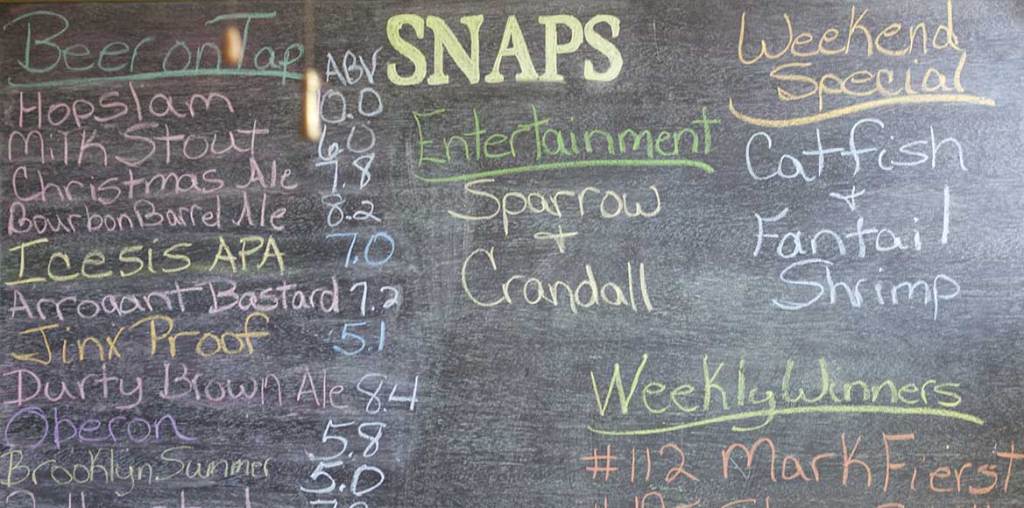 Beer on Tap ABV
Hopslam 10.0
Milk Stout 6.0
Christmas Ale 7.8
Bourbon Barrel Ale 8.2
Icesis APA 7.0
Arrogant Bastard 7.2
Jinx Proof 5.1
Durty Brown Ale 8.4
Oberon 5.8
Brooklyn Summer 5.0
SNAPS
Entertainment
Sparrow
+
Crandall
Weekend
Special
Catfish
+
Fantail
Shrimp
Weekly Winners
#112 Mark Fierst